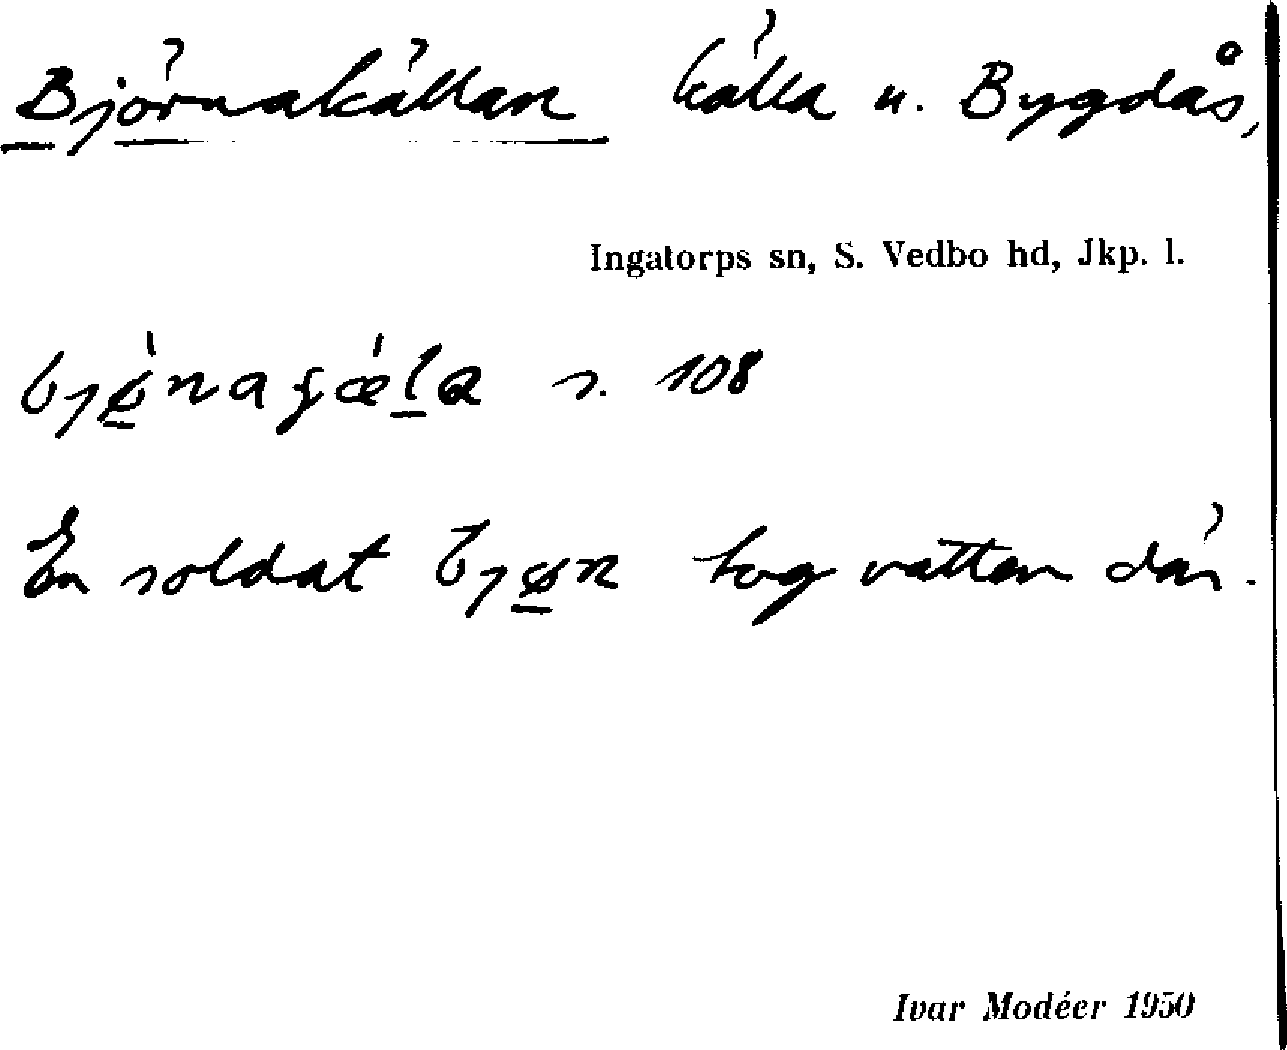 Björnakällan källa u. Bygdås,
Ingatorps sn, S. Vedbo hd, Jkp. l.
s. 108
En soldat bjøn tog vatten där.
Ivar Modéer 1950